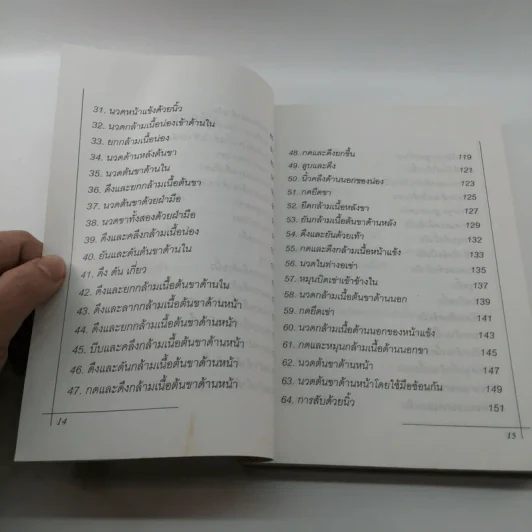 31. นวดหน้าแข้งด้วยนิ้ว
32. นวดกล้ามเนื้อน่องเข้าด้านใน
33. ยกกล้ามเนื้อน่อง
34. นวดด้านหลังต้นขา
35. นวดต้นขาด้านใน
36. ดึงและยกกล้ามเนื้อต้นขา
37. นวดต้นขาด้วยฝ่ามือ
38. นวดขาทั้งสองด้วยฝ่ามือ
39. ดึงและคลึงกล้ามเนื้อน่อง
40. ยันและดันต้นขาด้านใน
41. ดึง ดัน เกี่ยว
42. ดึงและยกกล้ามเนื้อต้นขาด้านใน
43. ดึงและลากกล้ามเนื้อต้นขาด้านหน้า
44. ดึงและยกกล้ามเนื้อต้นขาด้านหน้า
45. บีบและคลึงกล้ามเนื้อต้นขาด้านหน้า
46. ดึงและดันกล้ามเนื้อต้นขาด้านหน้า
47. กดและดึงกล้ามเนื้อต้นขาด้านหน้า
14
48. กดและดึงยกขึ้น 119
49. สูบและดึง 121
50. นิ้วดึงด้านนอกของน่อง 123
51. กดยืดขา 125
52. ยืดกล้ามเนื้อหลังขา 127
53. ยันกล้ามเนื้อต้นขาด้านหลัง 129
54. ดึงและยันด้วยเท้า 132
55. กดและดึงกล้ามเนื้อหน้าแข้ง 133
56. นวดในท่างอเข่า 135
57. หมุนบิดเข่าเข้าข้างใน 137
58. นวดกล้ามเนื้อต้นขาด้านนอก 139
59. กดยืดเข่า 141
60. นวดกล้ามเนื้อด้านนอกของหน้าแข้ง 143
61. กดและหมุนกล้ามเนื้อด้านนอกขา 145
62. นวดต้นขาด้านหน้า 147
63. นวดต้นขาด้านหน้าโดยใช้มือซ้อนกัน 149
64. การสับด้วยนิ้ว 151
15